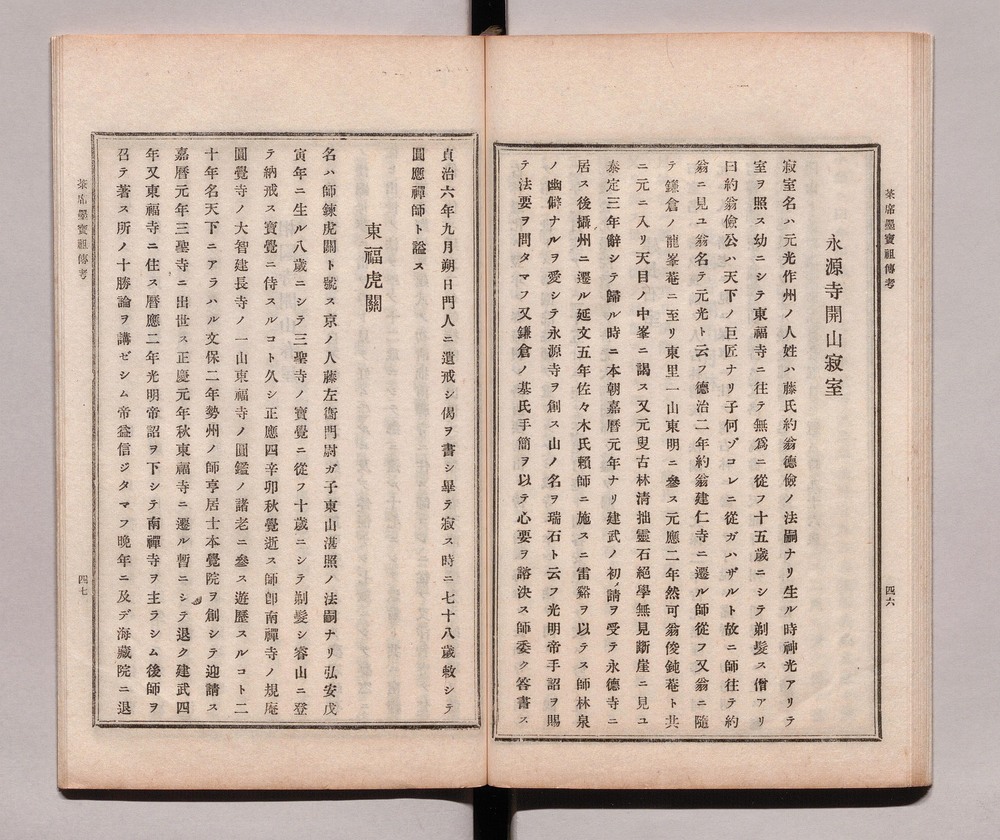 茶席墨寶祖傳考
四六
永源寺開山寂室
寂室名ハ元光作州ノ人姓ハ藤氏約翁德儉ノ法嗣ナリ生ル時神光アリテ
室ヲ照ス幼ニシテ東福寺ニ往テ無爲ニ從フ十五歳ニシテ剃髮ス僧アリ
曰約翁儉公ハ天下ノ巨匠ナリ子何ゾコレニ從ガハザルト故ニ師往テ約
翁ニ見ユ翁名テ元光ト云フ德治二年約翁建仁寺ニ遷ル師從フ又翁ニ隨
テ鎌倉ノ龍峯菴ニ至リ東里一山東明ニ參ス元應二年然可翁俊鈍菴ト共
ニ元ニ入リ天目ノ中峯ニ謁ス又元叟古林淸拙靈石絕學無見斷崖ニ見ユ
泰定三年辭シテ歸ル時ニ本朝嘉曆元年ナリ建武ノ初請ヲ受テ永德寺ニ
居ス後攝州ニ遷ル延文五年佐々木氏賴師ニ施スニ雷谿ヲ以テス師林泉
ノ幽僻ナルヲ愛シテ永源寺ヲ創ス山ノ名ヲ瑞石ト云フ光明帝手詔ヲ賜
テ法要ヲ問タマフ又鎌倉ノ基氏手簡ヲ以テ心要ヲ諮決ス師委ク答書ス
貞治六年九月朔日門人ニ遺戒シ偈ヲ書シ畢テ寂ス時ニ七十八歳敕シテ
圓應禪師ト謚ス
東福虎關
名ハ師鍊虎關ト號ス京ノ人藤左衞門尉ガ子東山湛照ノ法嗣ナリ弘安戊
寅年ニ生ル八歳ニシテ三聖寺ノ寶覺ニ從フ十歳ニシテ剃髮シ睿山ニ登
テ納戒ス寶覺ニ侍スルコト久シ正應四辛卯秋覺逝ス師卽南禪寺ノ規庵
圓覺寺ノ大智建長寺ノ一山東福寺ノ圓鑑ノ諸老ニ參ス遊歷スルコト二
十年名天下ニアラハル文保二年勢州ノ師亨居士本覺院ヲ創シテ迎請ス
嘉曆元年三聖寺ニ出世ス正慶元年秋東福寺ニ遷ル暫ニシテ退ク建武四
年又東福寺ニ住ス曆應二年光明帝詔ヲ下シテ南禪寺ヲ主ラシム後師ヲ
召テ著ス所ノ十勝論ヲ講ゼシム帝益信ジタマフ晩年ニ及デ海藏院ニ退
茶席墨寶祖傳考
四七